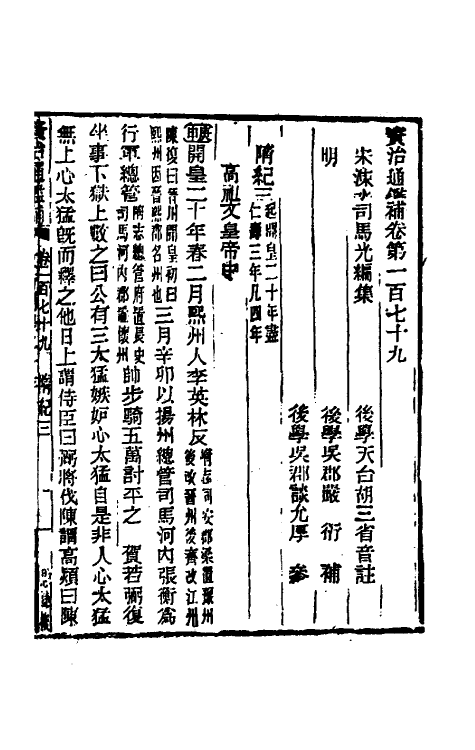 資治通鑑補卷第一百七十九
宋涑水司馬光編集
後學天台胡三省音註
明
後學吳郡嚴衍補
後學吳郡談允厚參
隋紀三
起 皇二十年盡
仁壽三年凡四年
高祖文皇帝中
開皇二十年春二月熙州人李英林反
隋志同安郡梁置豫州
後改晉州後齊改江州
陳復曰晉州開皇初曰
熙州因晉熙郡名州也
三月辛卯以揚州總管司馬河內張衡為
行軍總管
隋志總管府置長史
司馬河內郡置懷州
帥步騎五萬討平之 賀若弼復
坐事下獄上數之曰公有三太猛嫉妒心太猛自是非人心太猛
無上心太猛既而釋之他日上謂侍臣曰弼將伐陳謂高熲曰陳
資治通鑑補 卷一百七十九 隋紀三